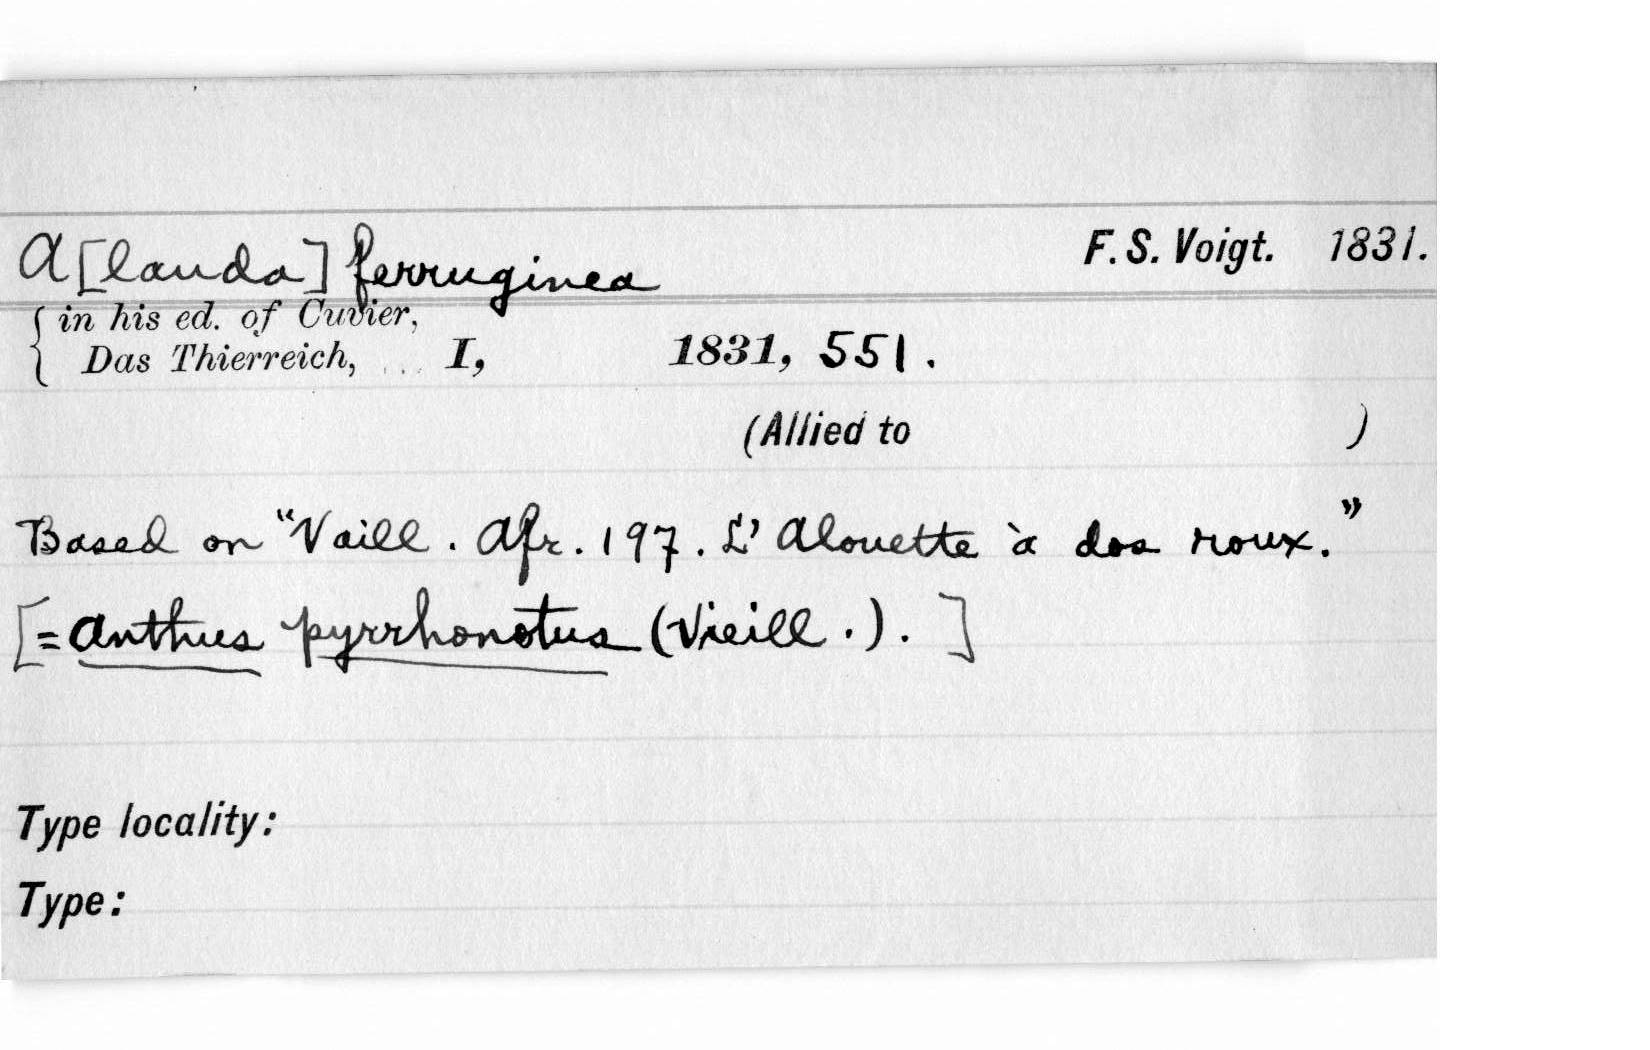 A[lauda] ferruginea F. S. Voigt. 1831.
{ in his ed. of Cuvier,
Das Thierreich, I, 1831, 551.
(Allied to )
Based on "Vaill. Afr. 197. L'Alouette à dos roux."
[= Anthus pyrrhonotus (Vieill.). ]
Type locality:
Type: